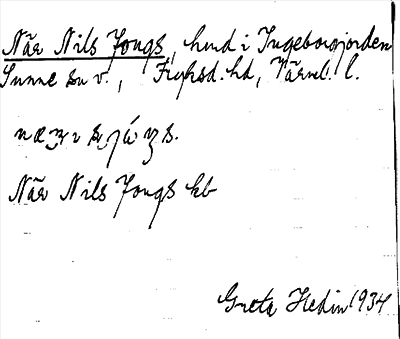 När Nils Jongs, hmd i Ingeborgjorden
Sunne sn v., Fryksd. hd, Värml. l.
När Nils Jongs kb
Greta Hedin 1934